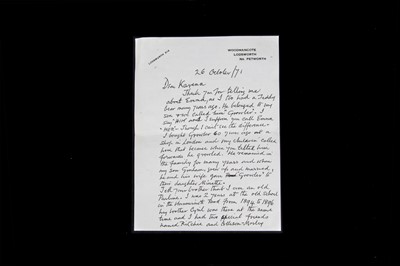 WOODMANCOTE
LODSWORTH
Nr. PETWORTH
26 October/71
Dear
Thank you for telling me
about as I too had a Teddy
bear many years ago. He belonged to my
son who called him 'Growler'. I
say 'He' and I suppose you call
though I can't see the difference -
I bought Growler 60 years ago at a
shop in London and my children called
him that because when you tilted him
forwards he growled. He remained in
the family for many years and when
my son Graham grew up and married,
he and his wife gave Growler to
their daughter Minette!
Tell your brother that I am an old
I was 2 years at the old School
in the road from 1894 to 1896
my brother Cyril was there at the same
time and I had two special friends
named Ritchie and